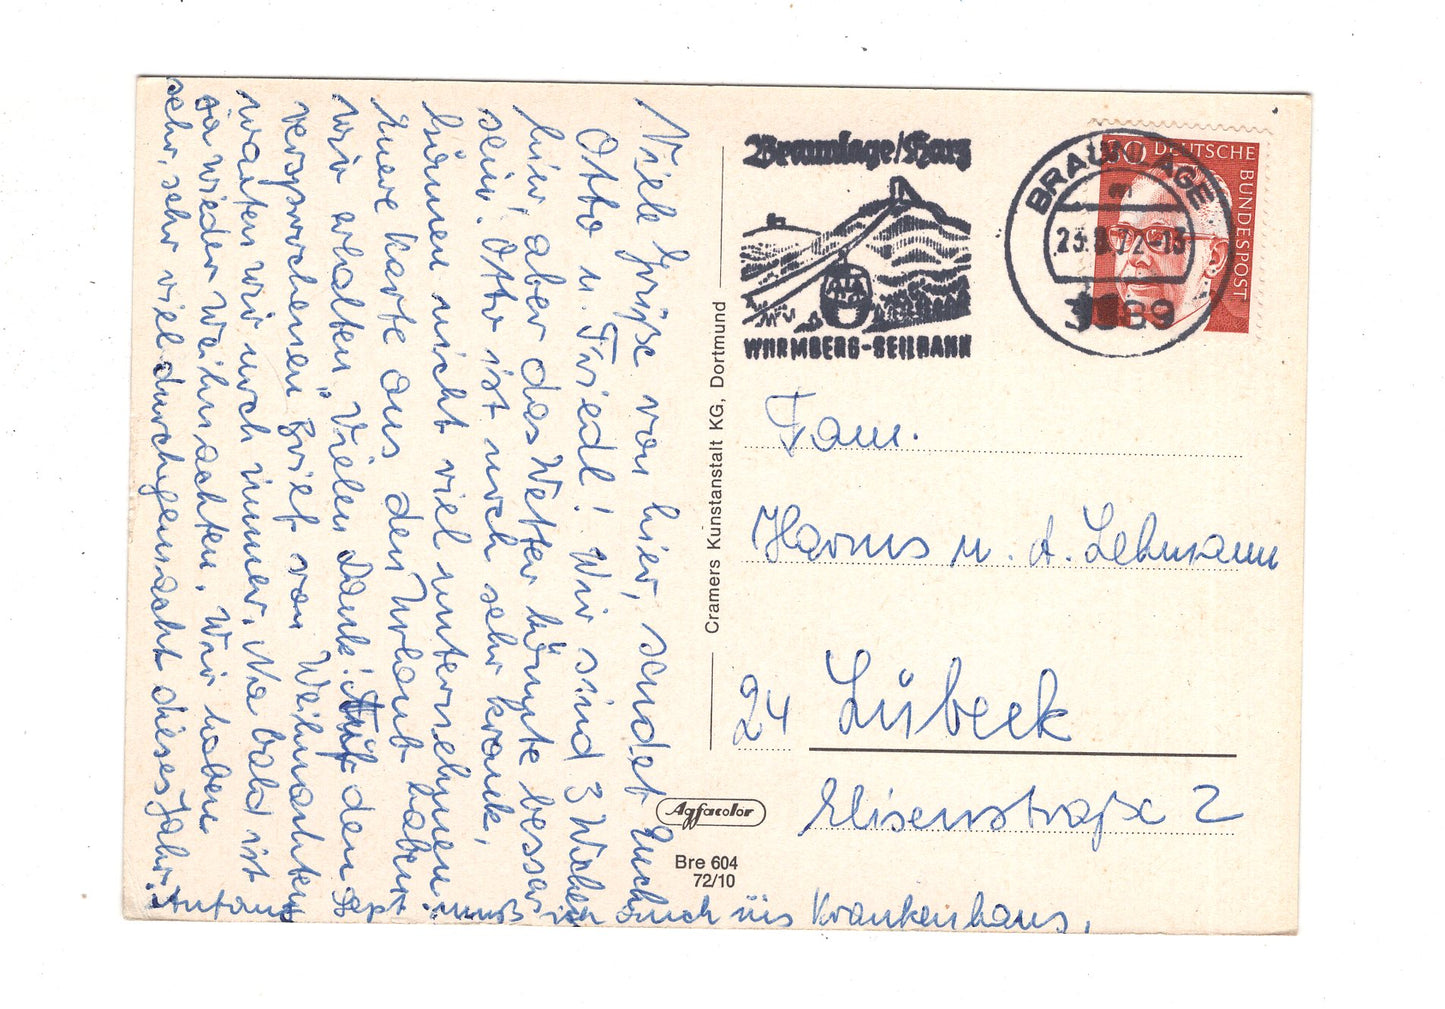 Viele Grüße von hier, sendet Euch
Otto u. Friedl! Wir sind 3 Wochen
hier, aber das Wetter könnte besser
sein. Otto ist noch sehr krank,
können nicht viel unternehmen
Eure Karte aus den Urlaub haben
wir erhalten, Vielen Dank! Auf den
versprochenen Brief von Weihnachten
warten wir noch immer. Na bald ist
ja wieder Weihnachten. Wir haben
sehr, sehr viel durchgemacht dieses Jahr.
Anfang Sept. muß ich auch ins Krankenhaus.
Cramers Kunstanstalt KG, Dortmund
Braunlage/Harz
WURMBERG-SEILBAHN
BRAUNLAGE
23.8.72-13
3389
DEUTSCHE
BUNDESPOST
Fam.
Harms u. A. Lehmann
24 Lübeck
Elisenstraße 2
Agfacolor
Bre 604
72/10